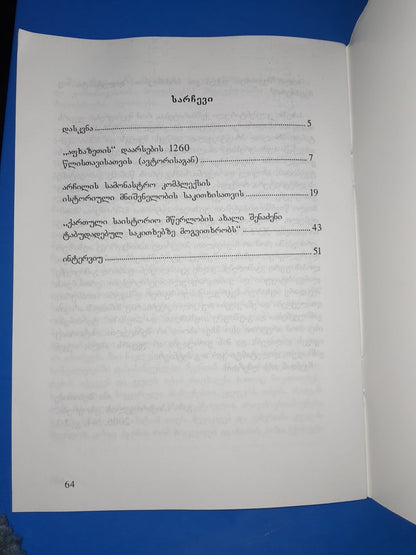 სარჩევი
დასკვნა 5
„აფხაზეთის“ დაარსების 1260
წლისთავისათვის (ავტორისაგან) 7
არჩილის სამონასტრო კომპლექსის
ისტორიული მნიშვნელობის საკითხისათვის 19
„ქართული საისტორიო მწერლობის ახალი შენაძენი
ტაბუდადებულ საკითხებზე მოგვითხრობს“ 43
ინტერვიუ 51
64